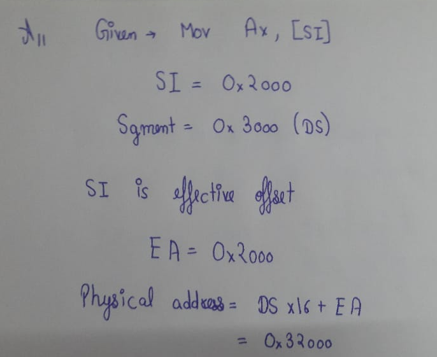 Given → Mov Ax, [SI]
SI = 0x2000
Sgment = 0x3000 (DS)
SI is effective offset
EA = 0x2000
Physical address = DS x16 + EA
= 0x32000